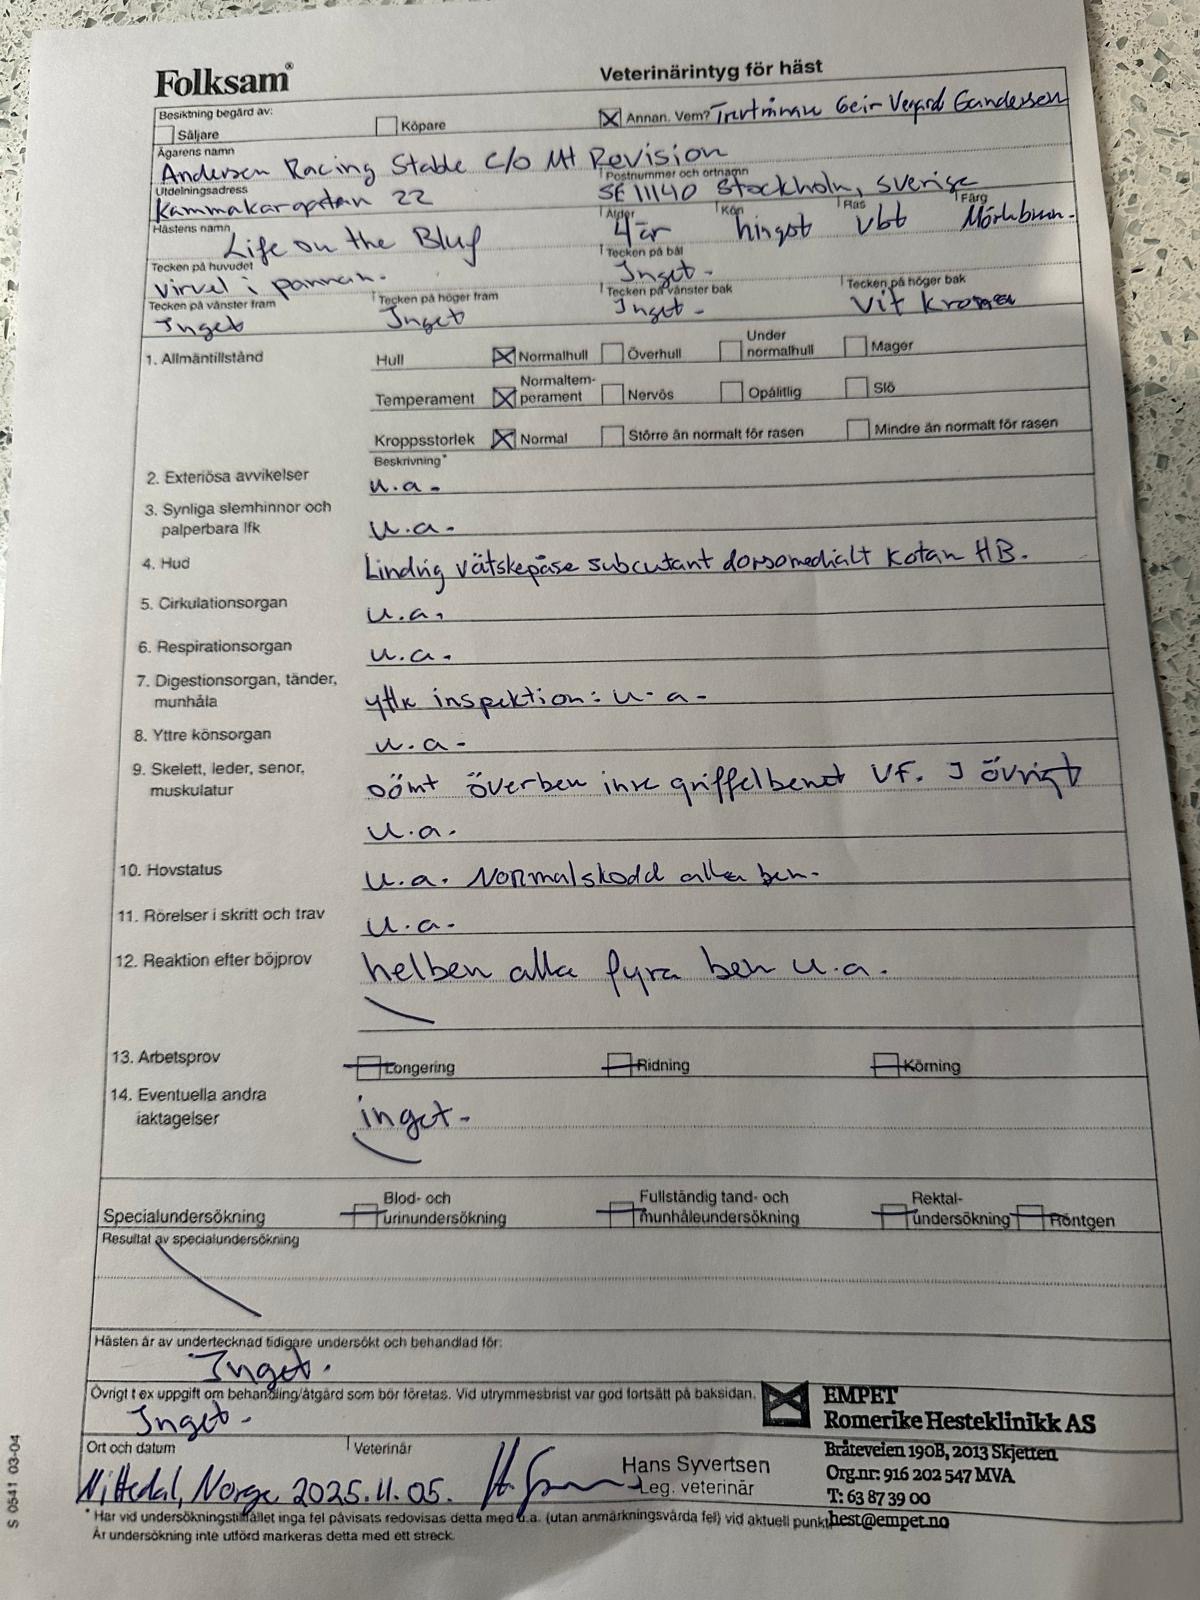 Folksam®
Veterinärintyg för häst
Besiktning begärd av:
Säljare
Köpare
Annan. Vem? Travtränare Geir Vegard Gundersen
Ägarens namn
Andersen Racing Stable C/O Mt Revision
Utdelningsadress
Postnummer och ortnamn
Kammakargatan 22
SE 11140 Stockholm, Sverige
Hästens namn
Ålder
Kön
Ras
Färg
Life on the Bluff
4 år
hingst
vbt
Mörkbrun.
Tecken på huvudet
Tecken på bål
virvel i pannan.
Inget.
Tecken på vänster fram
Tecken på höger fram
Tecken på vänster bak
Tecken på höger bak
Inget
Inget
Inget.
Vit krona
1. Allmäntillstånd
Hull
Normalhull
Överhull
Under normalhull
Mager
Temperament
Normaltemperament
Nervös
Opålitlig
Slö
Kroppsstorlek
Normal
Större än normalt för rasen
Mindre än normalt för rasen
Beskrivning*
2. Exteriösa avvikelser
u.a.
3. Synliga slemhinnor och
palperbara lfk
u.a.
4. Hud
Lindrig vätskepåse subcutant dorsomedialt kotan HB.
5. Cirkulationsorgan
u.a.
6. Respirationsorgan
u.a.
7. Digestionsorgan, tänder,
munhåla
yttre inspektion: u.a.
8. Yttre könsorgan
u.a.
9. Skelett, leder, senor,
muskulatur
oömt överben inre griffelbenet VF. I övrigt
u.a.
10. Hovstatus
u.a. Normalskodd alla ben.
11. Rörelser i skritt och trav
u.a.
12. Reaktion efter böjprov
helben alla fyra ben u.a.
13. Arbetsprov
Longering
Ridning
Körning
14. Eventuella andra
iaktagelser
inget.
Specialundersökning
Blod- och
urinundersökning
Fullständig tand- och
munhåleundersökning
Rektal-
undersökning
Röntgen
Resultat av specialundersökning
Hästen är av undertecknad tidigare undersökt och behandlad för:
Inget.
Övrigt t ex uppgift om behandling/åtgärd som bör företas. Vid utrymmesbrist var god fortsätt på baksidan.
Inget.
EMPET
Romerike Hesteklinikk AS
Bråteveien 190B, 2013 Skjetten
Org.nr: 916 202 547 MVA
T: 63 87 39 00
hest@empet.no
Ort och datum
Veterinär
Nittedal, Norge 2025.11.05.
Hans Syvertsen
Leg. veterinär
* Har vid undersökningstillfället inga fel påvisats redovisas detta med u.a. (utan anmärkningsvärda fel) vid aktuell punkt.
Är undersökning inte utförd markeras detta med ett streck.
S 0541 03-04